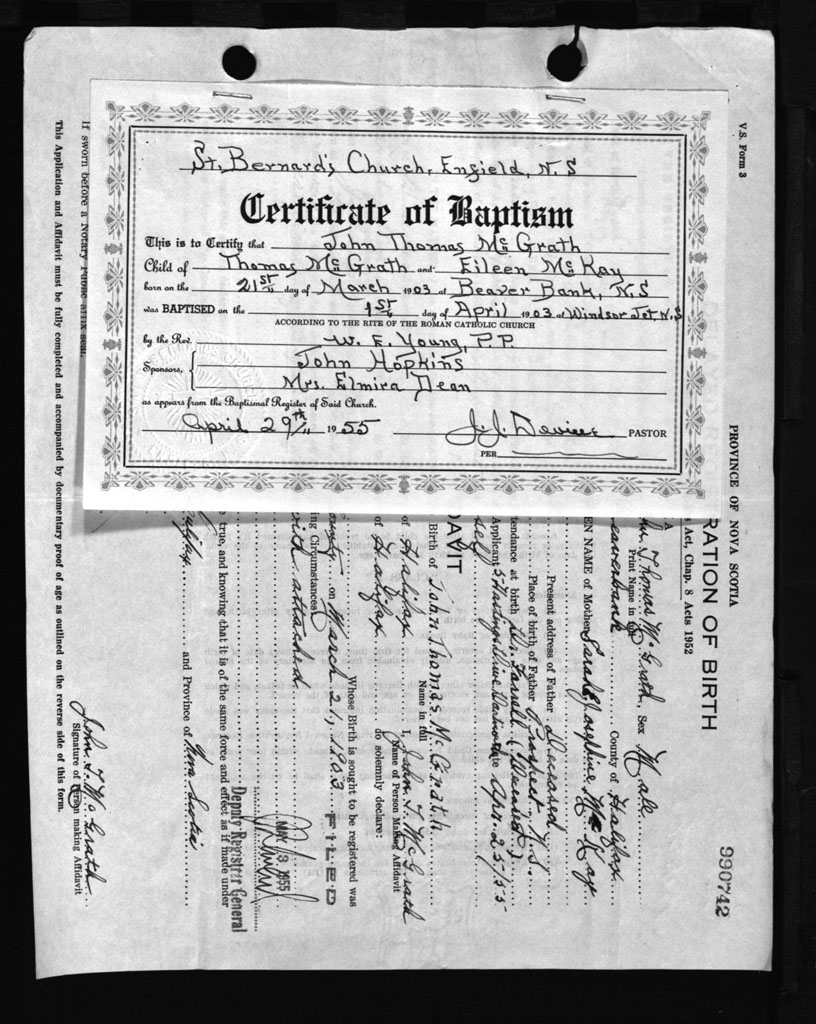 St. Bernard's Church, Enfield, N.S
Certificate of Baptism
This is to Certify that John Thomas McGrath
Child of Thomas McGrath and Eileen McKay
born on the 21st day of March 1903 at Beaver Bank, N.S
was BAPTISED on the 1st day of April 1903 at Windsor Jct, N.S
ACCORDING TO THE RITE OF THE ROMAN CATHOLIC CHURCH
by the Rev. W. E. Young, P.P.
Sponsors, John Hopkins
Mrs. Elmira Dean
as appears from the Baptismal Register of Said Church.
April 29th 1955 J. J. PASTOR
PER
V.S. Form 3
PROVINCE OF NOVA SCOTIA
990742
RATION OF BIRTH
Act, Chap. 8 Acts 1952
Thomas McGrath, Sex Male
Print Name in full
County of Halifax
EN NAME of Mother Sarah Josephine McKay
Present address of Father Deceased
Place of birth of Father N.S.
tendance at birth Dr. Farrell (Deceased)
Applicant Date Apr. 25/55
self
DAVIT
Birth of John Thomas McGrath
Name in full
of Halifax I, John T. McGrath
Name of Person Making Affidavit
of Halifax do solemnly declare:
Whose Birth is sought to be registered was
on March 21, 1903 FILED
ing Circumstances
attached
MAY 3 1955
Deputy Registrar General
e true, and knowing that it is of the same force and effect as if made under
and Province of Nova Scotia
John T. McGrath
Signature of Person making Affidavit
If sworn before a Notary Public affix seal.
This Application and Affidavit must be fully completed and accompanied by documentary proof of age as outlined on the reverse side of this form.